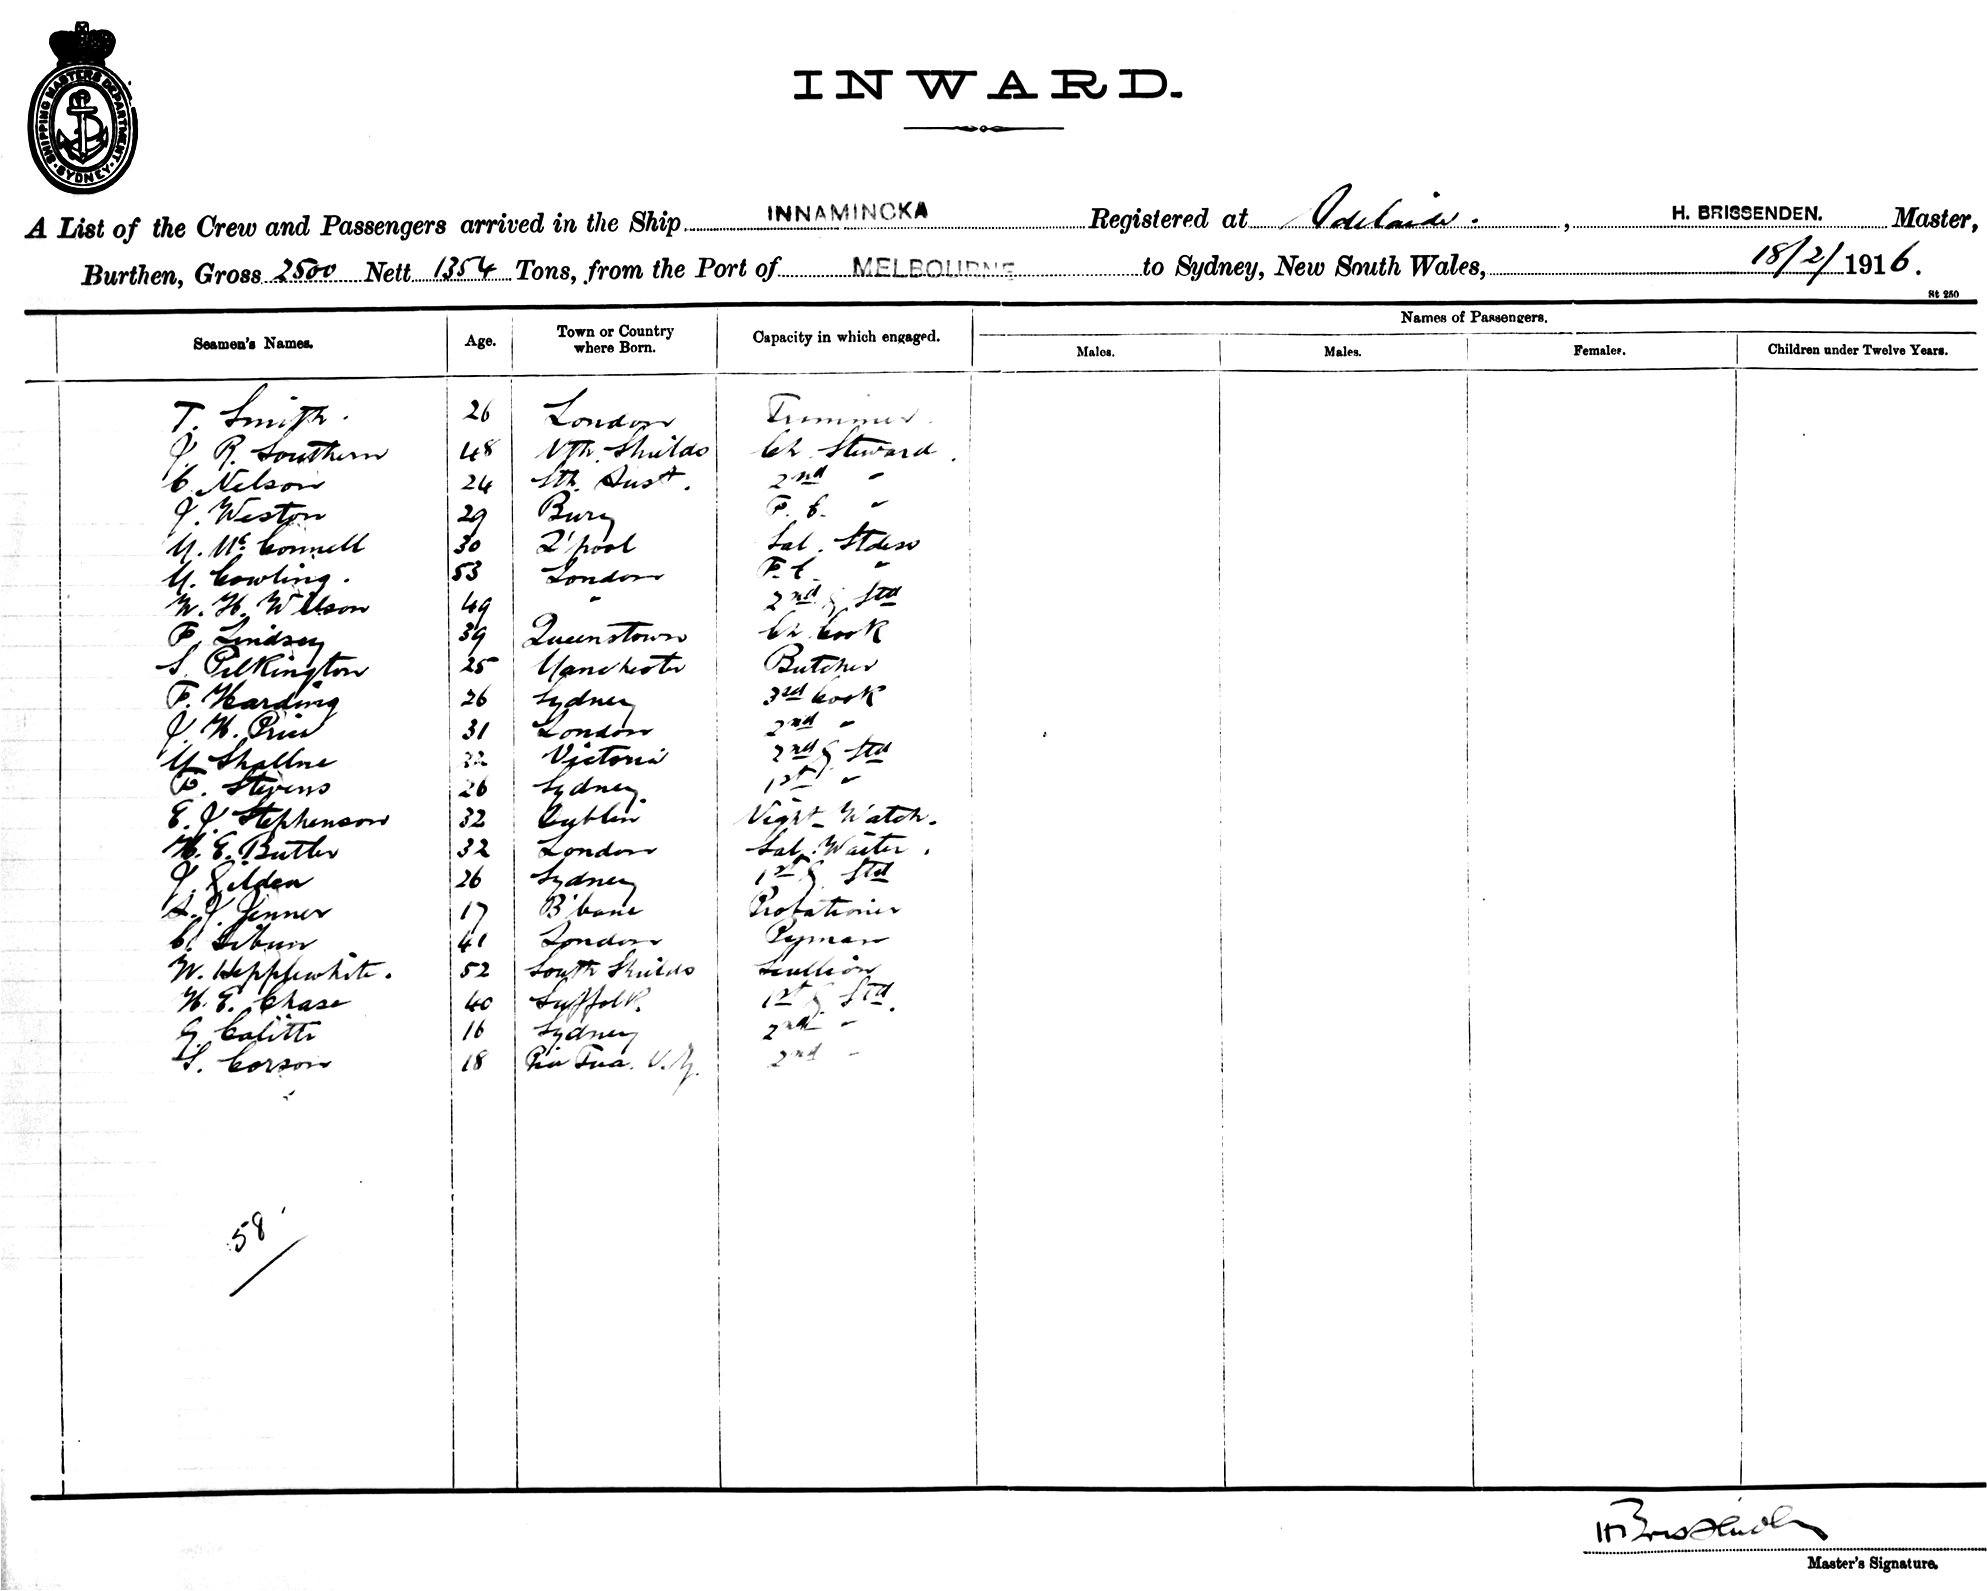 SHIPPING MASTERS DEPARTMENT
SYDNEY
INWARD.
A List of the Crew and Passengers arrived in the Ship INNAMINCKA Registered at Adelaide. , H. BRISSENDEN. Master,
Burthen, Gross 2500 Nett 1354 Tons, from the Port of MELBOURNE to Sydney, New South Wales, 18/2/1916.
St 250
Seamen's Names. Age. Town or Country where Born. Capacity in which engaged. Names of Passengers.
Males. Males. Females. Children under Twelve Years.
T. Smith. 26 London Trimmer.
J. R. Southern 48 Nth. Shields Ch. Steward.
C. Nelson 24 Sth. Aust. 2nd "
J. Weston 29 Bury F. C. "
M. McConnell 30 L'pool Sal. Stdess
M. Cowling. 53 London F. C. "
W. H. Wilson 49 " 2nd Std
F. Lindsey 39 Queenstown Ch. Cook
S. Pilkington 25 Manchester Butcher
F. Harding 26 Sydney 3rd Cook
J. H. Price 31 London 2nd "
M. 32 Victoria 2nd Std
F. Stevens 26 Sydney 1st "
E. J. Stephenson 32 Dublin Night-Watch.
H. E. Butler 32 London Sal. Waiter.
J. 26 Sydney 1st Std
A. J. Jenner 17 B'bane Probationer
C. 41 London Pyman
W. Hepplewhite. 52 South Shields Scullion
H. E. Chase 40 Suffolk. 1st Std.
G. Calitti 16 Sydney 2nd "
S. Corson 18 N.Z. 2nd "
58
H Brissenden
Master's Signature.